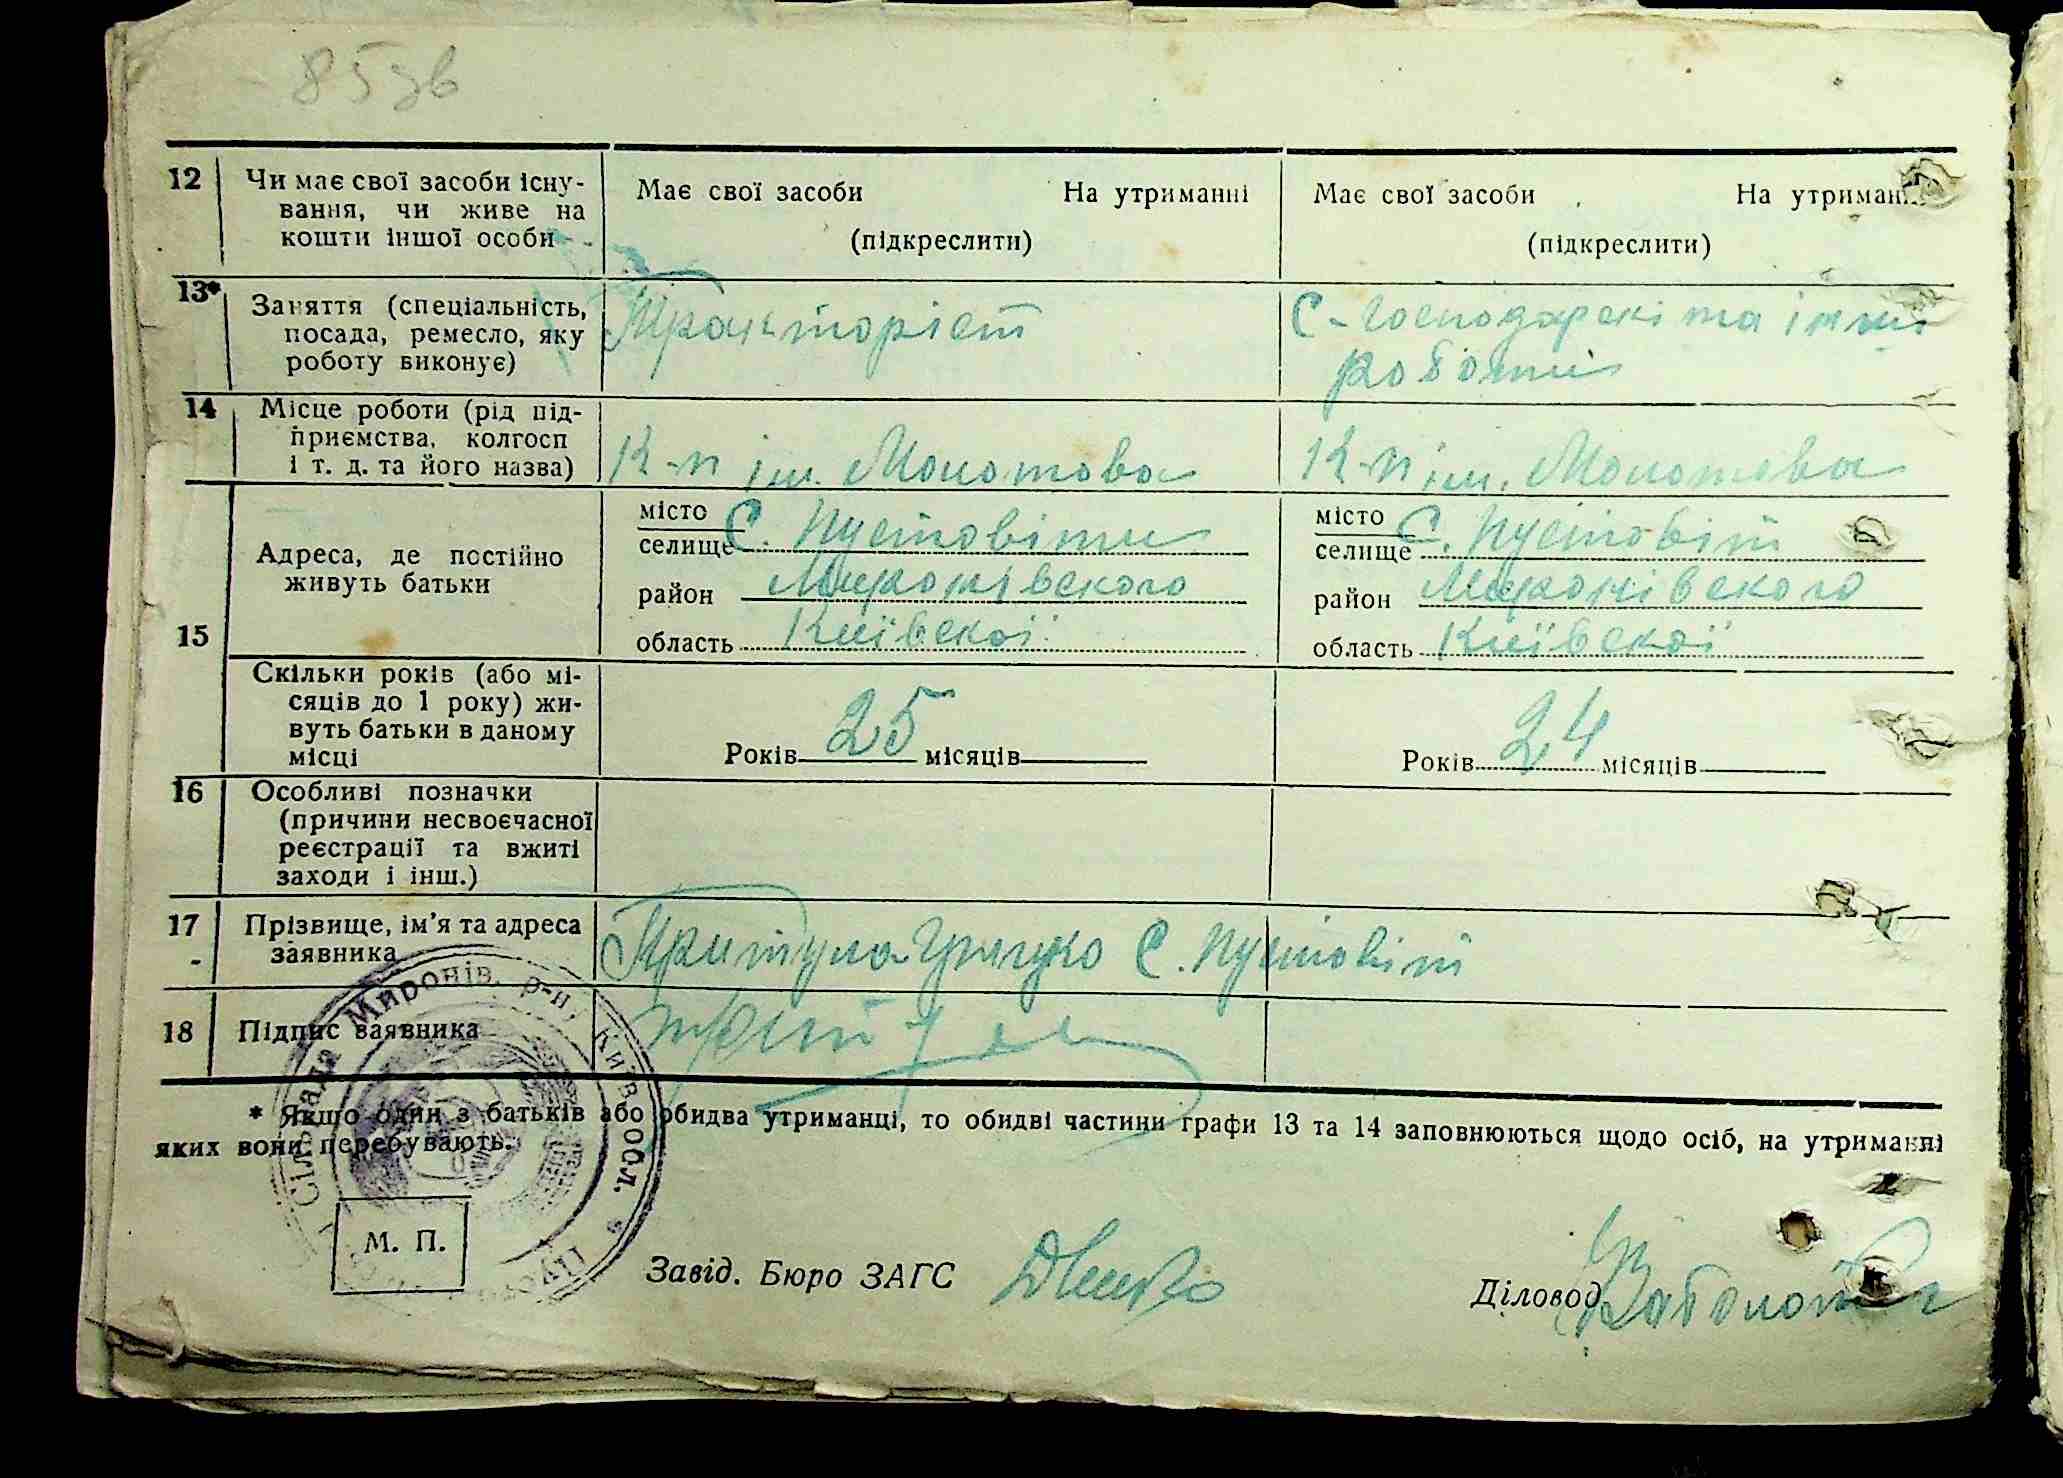 85зв
12 Чи має свої засоби існу- Має свої засоби На утриманні Має свої засоби На утриман
вання, чи живе на
кошти іншої особи (підкреслити) (підкреслити)
13* Заняття (спеціальність, Тракторіст С-господарскі та інші
посада, ремесло, яку роботи
роботу виконує)
14 Місце роботи (рід під-
приємства, колгосп
і т. д. та його назва) К-п ім. Молотова К-п ім. Молотова
15 Адреса, де постійно
живуть батьки
місто
селище С. Пустовіти
район Миронівского
область Київскої
місто
селище С. Пустовіт
район Миронівского
область Київскої
Скільки років (або мі-
сяців до 1 року) жи-
вуть батьки в даному
місці
Років 25 місяців Років 24 місяців
16 Особливі позначки
(причини несвоєчасної
реєстрації та вжиті
заходи і інш.)
17 Прізвище, ім'я та адреса
заявника Притула Грицко С. Пустовіт
18 Підпис заявника
* Якщо один з батьків або обидва утриманці, то обидві частини графи 13 та 14 заповнюються щодо осіб, на утриманні
яких вони перебувають.
Сільрада Миронів. р-ну Київ обл.
М. П.
Завід. Бюро ЗАГС
Діловод